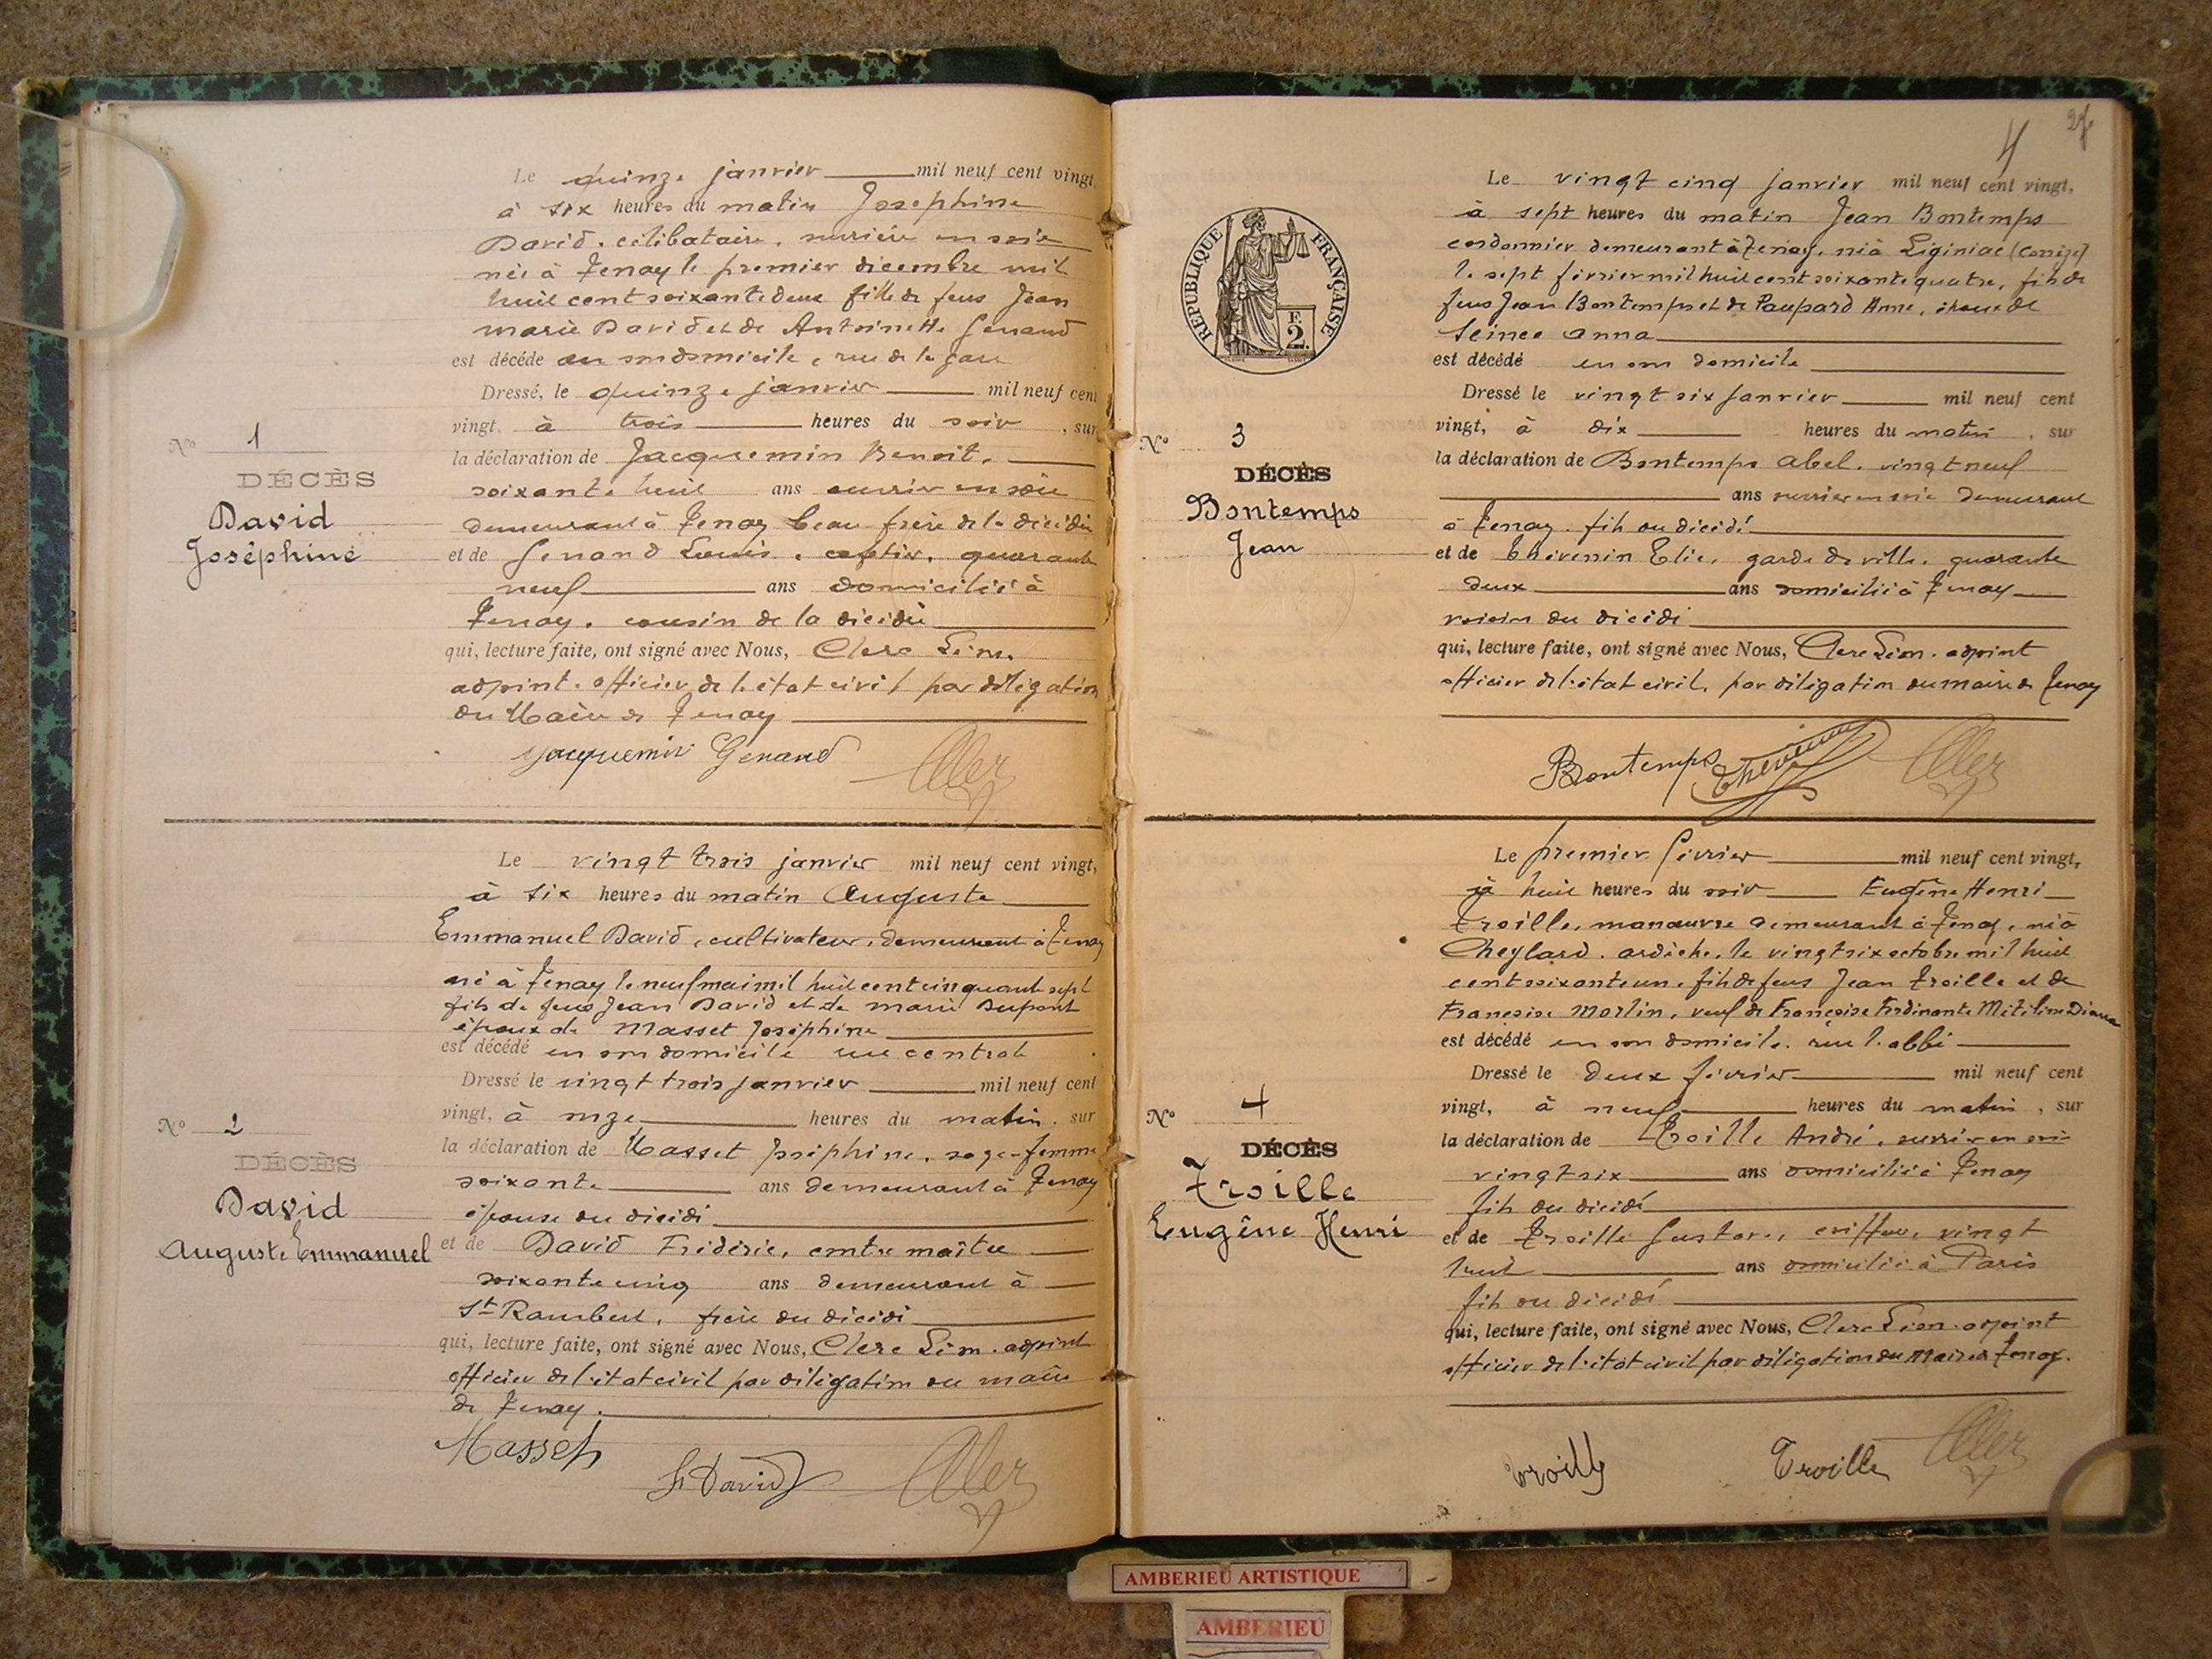 Le quinze janvier mil neuf cent vingt,
à six heures du matin Josephine
David, célibataire, ouvrière en soie
née à Tenay le premier décembre mil
huit cent soixante deux fille de feus Jean
marie David et de Antoinette Genand
est décédé en son domicile, rue de la gare
Dressé, le quinze janvier mil neuf cent
vingt, à trois heures du soir, sur
la déclaration de Jacquemin Benoit,
soixante huit ans ouvrier en soie
demeurant à Tenay beau frère de la décédée
et de Genand Louis, quarante
neuf ans domicilié à
Tenay, cousin de la décédée
qui, lecture faite, ont signé avec Nous, Clerc Léon
adjoint, officier de l'état civil par délégation
du Maire de Tenay
Jacquemin Genand Clerc
N° 1
DÉCÈS
David
Joséphine
Le vingt trois janvier mil neuf cent vingt,
à six heures du matin Auguste
Emmanuel David, cultivateur, demeurant à Tenay
né à Tenay le neuf mai mil huit cent cinquante sept
fils de feus Jean David et de marie Dupont
époux de Masset Joséphine
est décédé en son domicile rue centrale
Dressé le vingt trois janvier mil neuf cent
vingt, à onze heures du matin, sur
la déclaration de Masset Joséphine, sage-femme
soixante ans demeurant à Tenay
épouse du décédé
et de David Frédéric, contre maître
soixante cinq ans demeurant à
St Rambert, frère du décédé
qui, lecture faite, ont signé avec Nous, Clerc Léon, adjoint
officier de l'état civil par délégation du maire
de Tenay.
Masset
F. David Clerc
N° 2
DÉCÈS
David
Auguste Emmanuel
4
RÉPUBLIQUE FRANÇAISE
F.
2.
Le vingt cinq janvier mil neuf cent vingt,
à sept heures du matin Jean Bontemps
cordonnier demeurant à Tenay, né à Liginiac (Corrèze)
le sept février mil huit cent soixante quatre, fils de
feus Jean Bontemps et de Paupard Anne, époux de
anna
est décédé en son domicile
Dressé le vingt six janvier mil neuf cent
vingt, à dix heures du matin, sur
la déclaration de Bontemps abel, vingt neuf
ans ouvrier en soie demeurant
à Tenay, fils du décédé
et de Thévenin Elie, garde de ville, quarante
deux ans domicilié à Tenay
voisin du décédé
qui, lecture faite, ont signé avec Nous, Clerc Léon, adjoint
officier de l'état civil, par délégation du maire de Tenay
Bontemps Thévenin Clerc
N° 3
DÉCÈS
Bontemps
Jean
Le premier février mil neuf cent vingt,
à huit heures du soir Eugène Henri
Troille, manœuvre demeurant à Tenay, né à
Cheylard, ardèche, le vingt six octobre mil huit
cent soixante un, fils de feus Jean Troille et de
Françoise Morlin, veuf de Françoise Ferdinante Diana
est décédé en son domicile, rue l'abbé
Dressé le deux février mil neuf cent
vingt, à neuf heures du matin, sur
la déclaration de Troille André, ouvrier en soie
vingt six ans domicilié à Tenay
fils du décédé
et de Troille Gustave, coiffeur, vingt
huit ans domicilié à Paris
fils du décédé
qui, lecture faite, ont signé avec Nous, Clerc Léon, adjoint
officier de l'état civil par délégation du Maire de Tenay.
Troille Troille Clerc
N° 4
DÉCÈS
Troille
Eugène Henri
AMBERIEU ARTISTIQUE
AMBERIEU